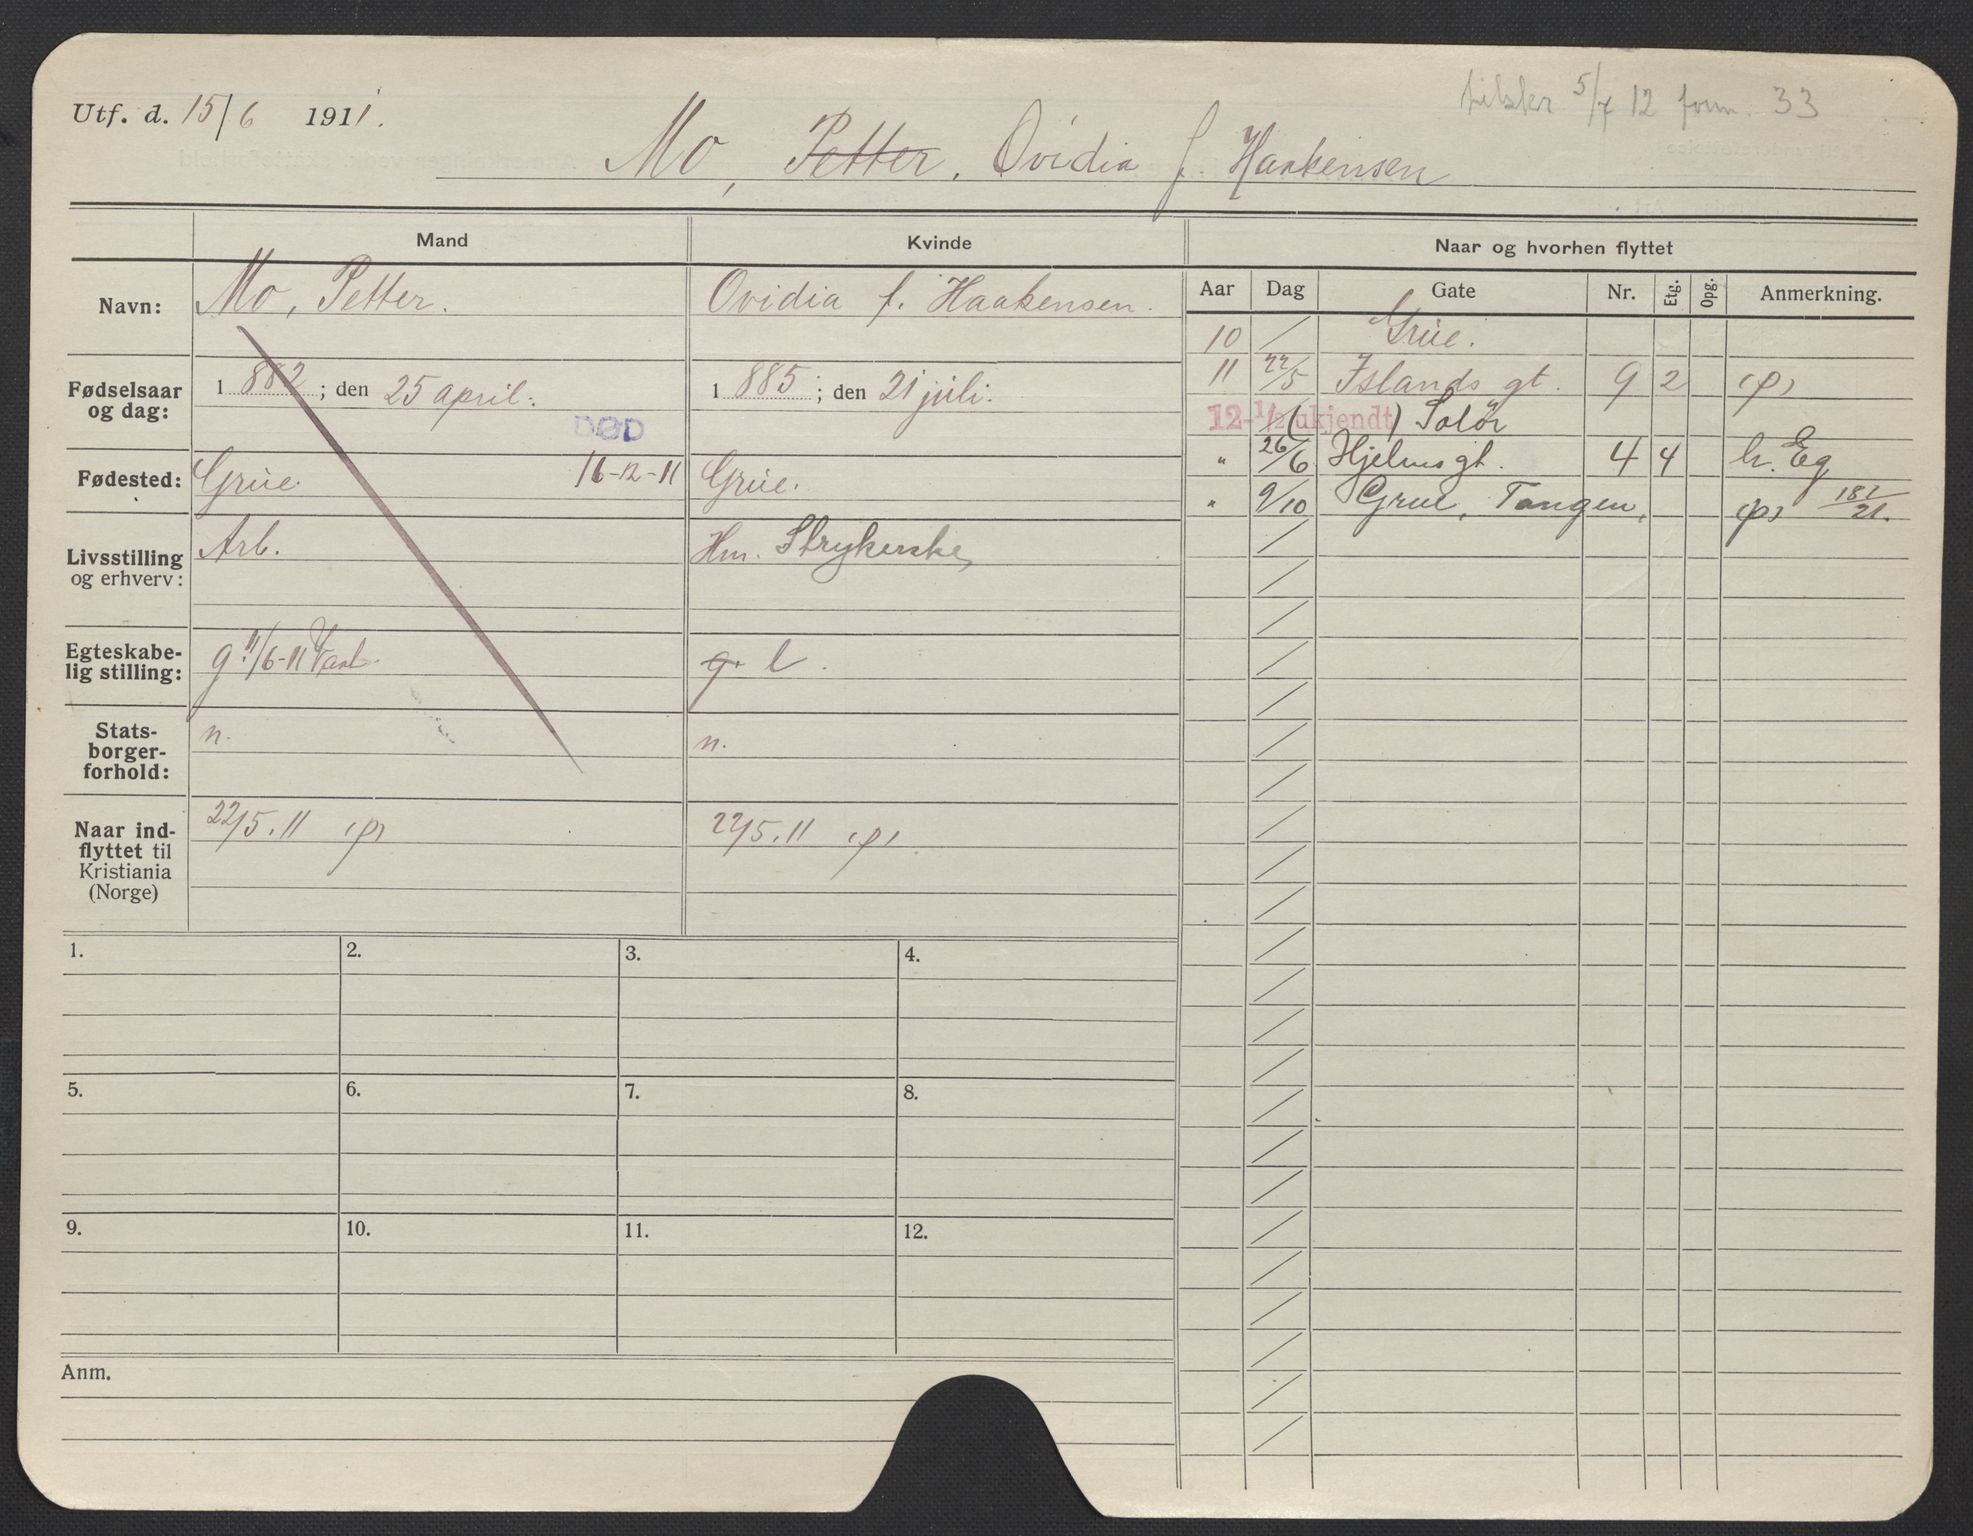 Utf. d. 15/6 1911.
tilskr 5/7 12 form. 33
Mo, Petter. Ovidia f. Haakensen
Mand
Kvinde
Naar og hvorhen flyttet
Navn:
Mo, Petter.
Ovidia f. Haakensen.
Aar Dag Gate Nr. Etg. Opg. Anmerkning.
10 / Grue.
11 22/5 Islands gt. 9 2 (p)
12 1/2 (ukjendt) Solør
" 26/6 Hjelms gt. 4 4 h. Eg
" 9/10 Grue, Tangen, (p) 181/21.
Fødselsaar og dag:
1882; den 25 april.
1885; den 21 juli.
DØD
Fødested:
Grue.
16-12-11
Grue.
Livsstilling og erhverv:
Arb.
Hm. Strykerske
Egteskabe-
lig stilling:
g. 11/6-11
g. l.
Stats-
borger-
forhold:
n.
n.
Naar ind-
flyttet til
Kristiania
(Norge)
22/5.11 (p)
22/5.11 (p)
1. 2. 3. 4.
5. 6. 7. 8.
9. 10. 11. 12.
Anm.